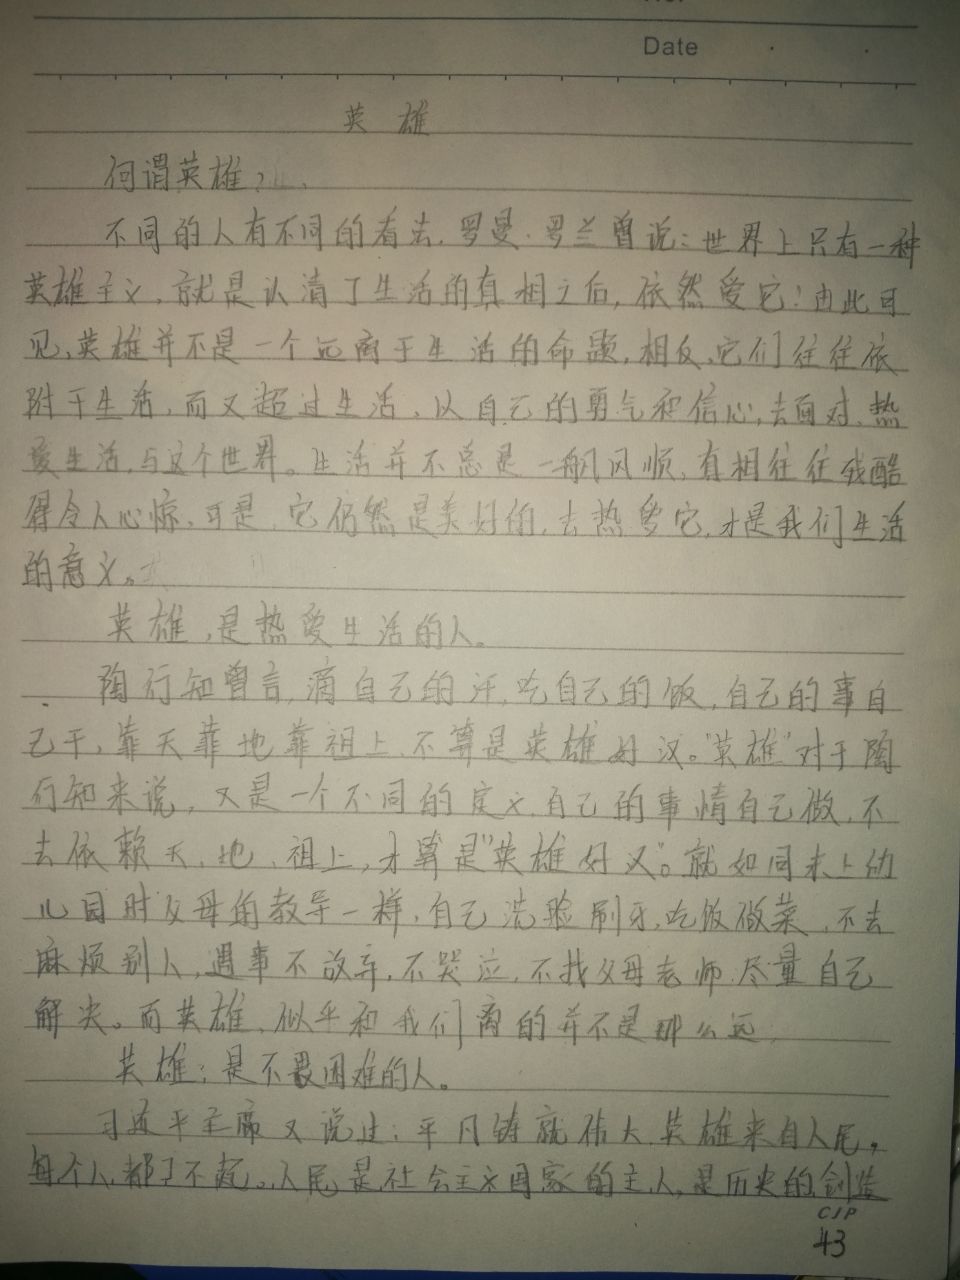 Date
英雄
何谓英雄?
不同的人有不同的看法,罗曼·罗兰曾说:世界上只有一种
英雄主义,就是认清了生活的真相之后,依然爱它!由此可
见,英雄并不是一个远离于生活的命题,相反,它们往往依
附于生活,而又超过生活,以自己的勇气和信心,去面对、热
爱生活,与这个世界。生活并不总是一帆风顺,真相往往残酷
得令人心惊,可是,它仍然是美好的,去热爱它,才是我们生活
的意义。
英雄,是热爱生活的人。
陶行知曾言,滴自己的汗,吃自己的饭,自己的事自
己干,靠天靠地靠祖上,不算是英雄好汉。"英雄"对于陶
行知来说,又是一个不同的定义,自己的事情自己做,不
去依赖天、地、祖上,才算是"英雄好汉"。就如同未上幼
儿园时父母的教导一样,自己洗脸刷牙,吃饭做菜,不去
麻烦别人,遇事不放弃,不哭泣,不找父母老师,尽量自己
解决。而英雄,似乎和我们离的并不是那么远,
英雄;是不畏困难的人。
习近平主席又说过:平凡铸就伟大,英雄来自人民。
每个人都了不起。人民是社会主义国家的主人,是历史的创造
CJP
43